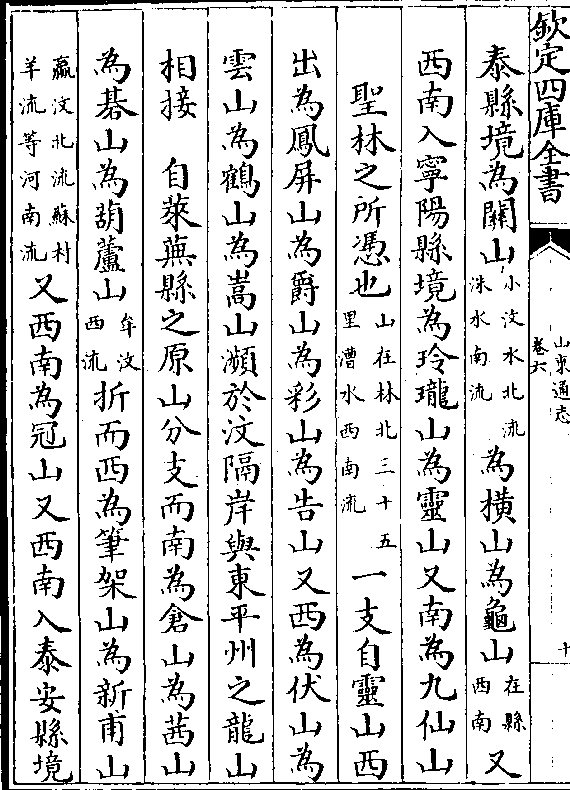 欽定四庫全書
山東通志
卷六
十
泰縣境為關山小汶水北流洙水南流為橫山為龜山在縣西南又
西南入寧陽縣境為玲瓏山為靈山又南為九仙山
聖林之所憑也山在林北三十五里漕水西南流一支自靈山西
出為鳳屏山為爵山為彩山為告山又西為伏山為
雲山為鶴山為嵩山瀕於汶隔岸與東平州之龍山
相接　自萊蕪縣之原山分支而南為倉山為茜山
為碁山為葫蘆山牟汶西流折而西為筆架山為新甫山
嬴汶北流蘇村羊流等河南流又西南為冠山又西南入泰安縣境